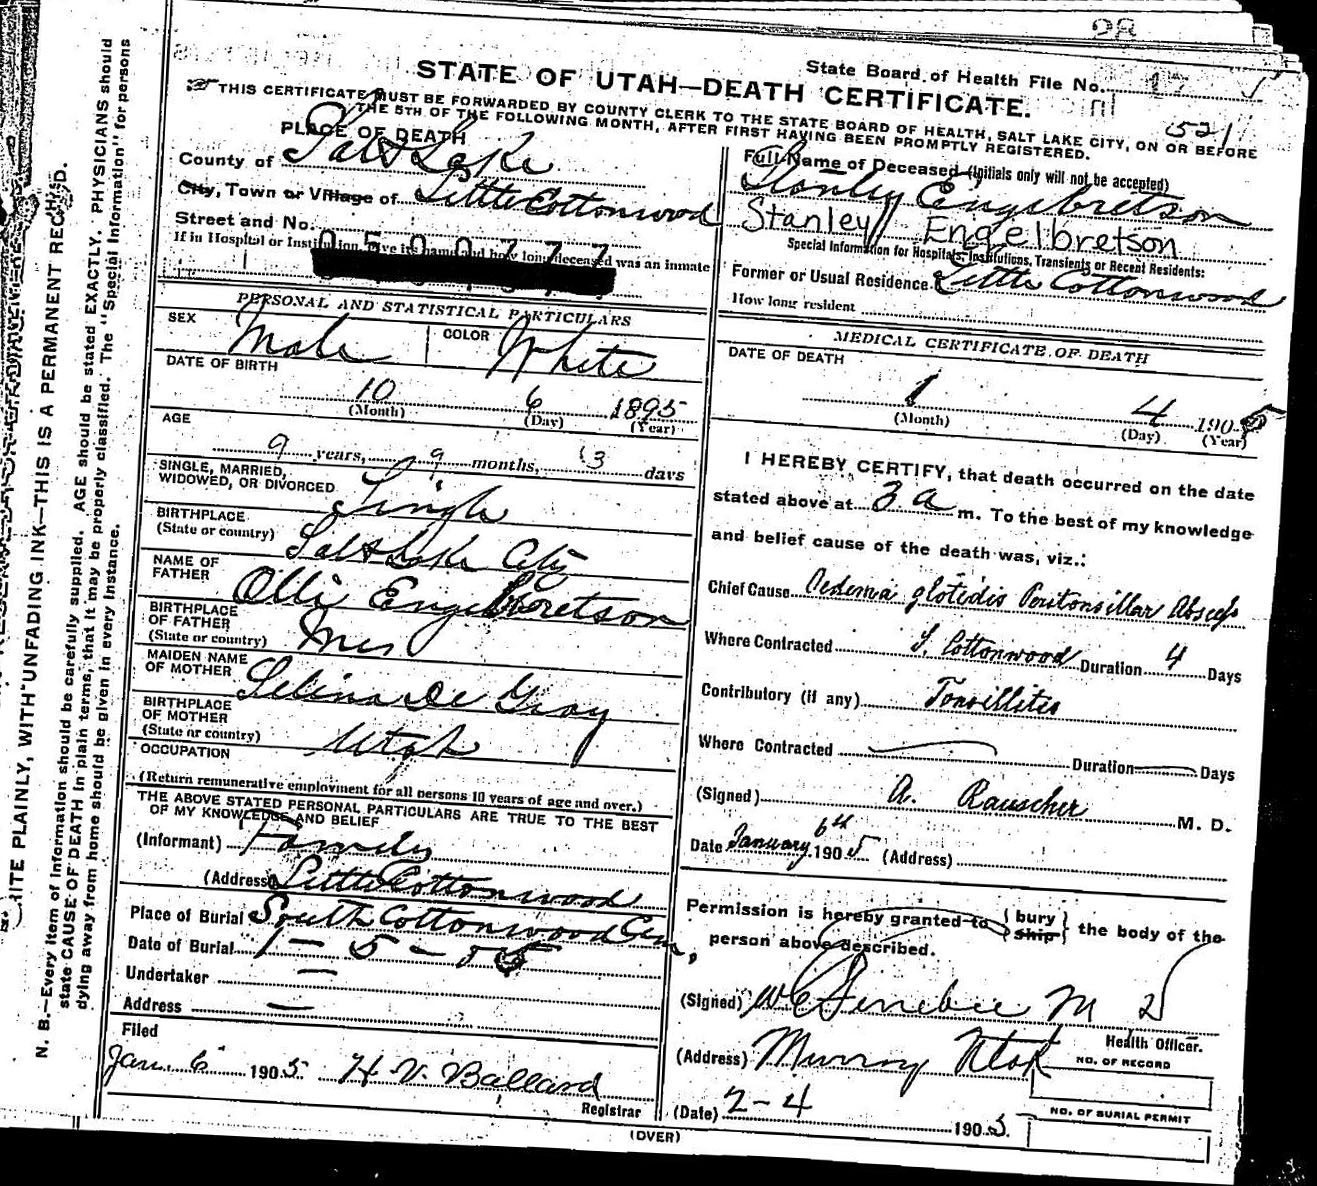 State Board of Health File No.
STATE OF UTAH—DEATH CERTIFICATE.
521
THIS CERTIFICATE MUST BE FORWARDED BY COUNTY CLERK TO THE STATE BOARD OF HEALTH, SALT LAKE CITY, ON OR BEFORE
THE 5TH OF THE FOLLOWING MONTH, AFTER FIRST HAVING BEEN PROMPTLY REGISTERED.
PLACE OF DEATH
County of Salt Lake
City, Town or Village of Little Cottonwood
Street and No.
If in Hospital or Institution, give its name and how long deceased was an inmate
0500777
PERSONAL AND STATISTICAL PARTICULARS
SEX Male COLOR White
DATE OF BIRTH
10 6 1895
(Month) (Day) (Year)
AGE
9 years, 9 months, 3 days
SINGLE, MARRIED,
WIDOWED, OR DIVORCED Single
BIRTHPLACE
(State or country) Salt Lake City
NAME OF
FATHER Olli Engelbretson
BIRTHPLACE
OF FATHER
(State or country)
MAIDEN NAME
OF MOTHER Selina De Gray
BIRTHPLACE
OF MOTHER
(State or country) Utah
OCCUPATION
(Return remunerative employment for all persons 10 years of age and over.)
THE ABOVE STATED PERSONAL PARTICULARS ARE TRUE TO THE BEST
OF MY KNOWLEDGE AND BELIEF
(Informant) Family
(Address) Little Cottonwood
Place of Burial South Cottonwood Cem,
Date of Burial 1 — 5 — 05
Undertaker —
Address —
Filed
Jan. 6 1905 H V Ballard
Registrar
Full Name of Deceased (Initials only will not be accepted)
Stanley Engebretson
Stanley Engelbretson
Special Information for Hospitals, Institutions, Transients or Recent Residents:
Former or Usual Residence Little Cottonwood
How long resident
MEDICAL CERTIFICATE OF DEATH
DATE OF DEATH
1 4 1905
(Month) (Day) (Year)
I HEREBY CERTIFY, that death occurred on the date
stated above at 3 a m. To the best of my knowledge
and belief cause of the death was, viz.:
Chief Cause Oedema glotidis Peritonsillar Absess
Where Contracted L. Cottonwood Duration 4 Days
Contributory (if any) Tonsillitis
Where Contracted — Duration — Days
(Signed) A. Rauscher M. D.
Date January 6th 1905 (Address)
Permission is hereby granted to { bury ship } the body of the
person above described.
(Signed) M D
Health Officer.
(Address) Murray Utah
NO. OF RECORD
(Date) 2-4 1905.
NO. OF BURIAL PERMIT
(OVER)
WRITE PLAINLY, WITH UNFADING INK—THIS IS A PERMANENT RECORD.
N. B.—Every item of information should be carefully supplied. AGE should be stated EXACTLY. PHYSICIANS should
state CAUSE OF DEATH in plain terms, that it may be properly classified. The "Special Information" for persons
dying away from home should be given in every instance.